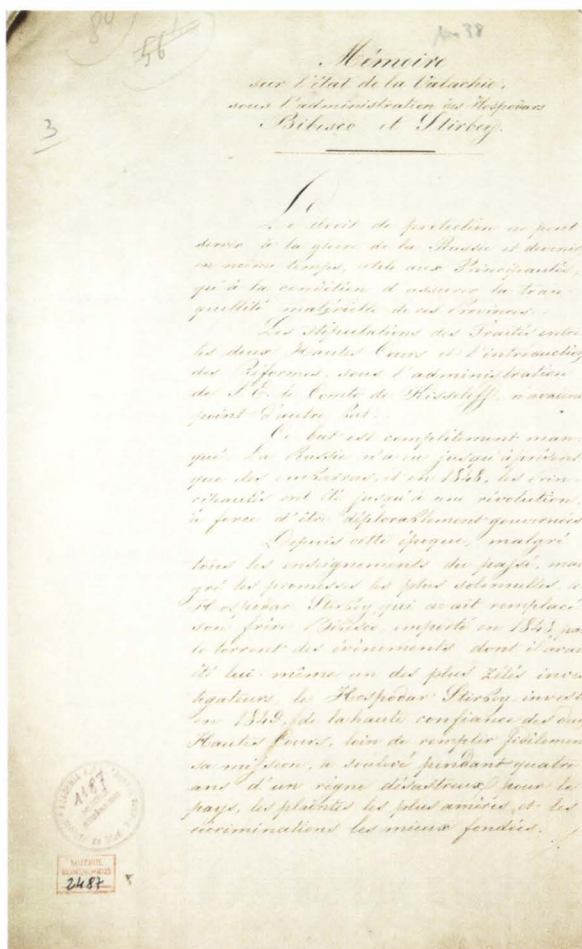 80
56
No 38
3
Mémoire
sur l'état de la Valachie,
sous l'administration des Hospodars
Bibesco et Stirbey.
Le
Le droit de protection ne peut
servir à la gloire de la Russie et devenir,
en même temps, utile aux Principautés,
qu'à la condition d'assurer la tran-
quillité matérielle de ces Provinces.
Les stipulations des Traités entre
les deux Hautes Cours et l'introduction
des Réformes, sous l'administration
de S. E. le Comte de Kisseleff, n'avaient
point d'autre but.
Ce but est complètement man-
qué. La Russie n'a eu jusqu'à présent
que des embarras, et en 1848, les Prin-
cipautés ont été jusqu'à une révolution,
à force d'être déplorablement gouvernées.
Depuis cette époque, malgré
tous les enseignements du passé, mal-
gré les promesses les plus solennelles, le
Hospodar Stirbey, qui avait remplacé
son frère Bibesco, emporté en 1848, par
le torrent des évènements dont il avait
été lui-même un des plus zélés inves-
tigateurs, le Hospodar Stirbey investi
en 1849, de la haute confiance des deux
Hautes Cours, loin de remplir fidèlement
sa mission, a soulevé pendant quatre
ans d'un règne désastreux pour le
pays, les plaintes les plus amères et les
récriminations les mieux fondées.
ACADEMIA
1187
2487